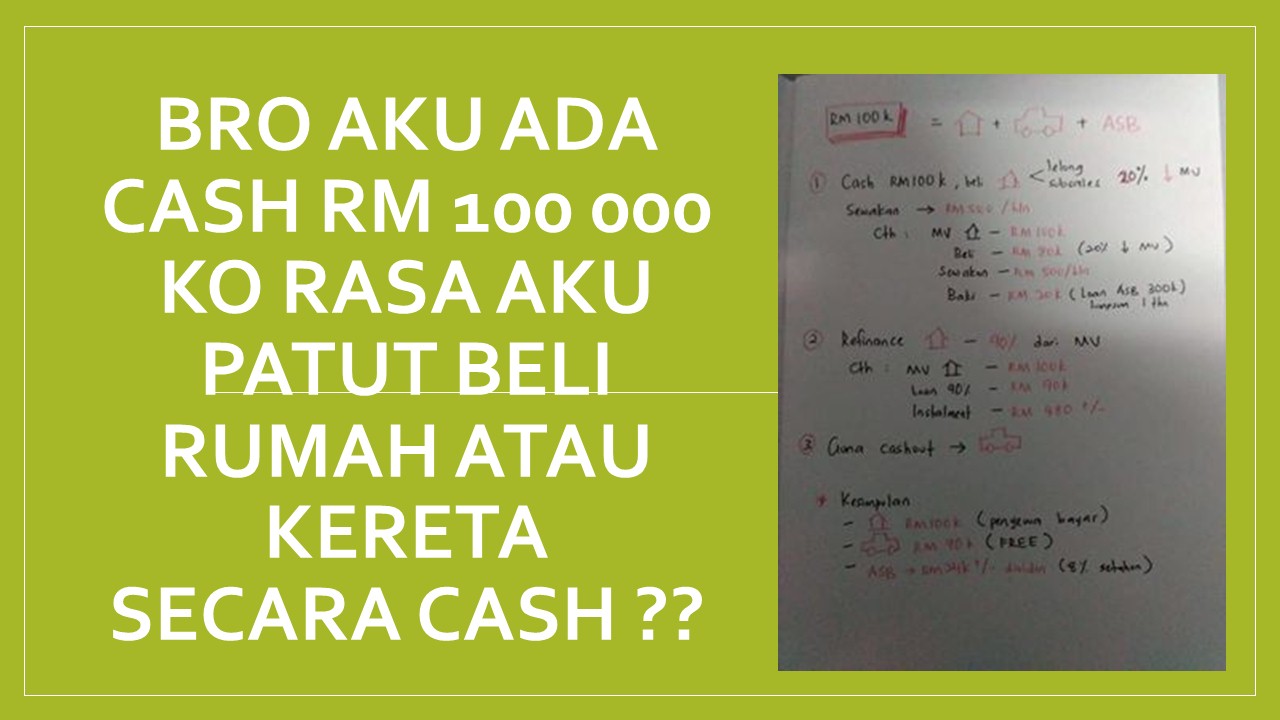 BRO AKU ADA
CASH RM 100 000
KO RASA AKU
PATUT BELI
RUMAH ATAU
KERETA
SECARA CASH ??
RM 100k = + + ASB
1 Cash RM100k, beli < lelong
subsales 20% ↓ MV
Sewakan → RM500/bln
Cth : MV - RM100k
Beli - RM 80k (20% ↓ MV)
Sewakan - RM 500/bln
Baki - RM 20k (Loan ASB 300k)
1 thn
2 Refinance - 90% dari MV
Cth : MV - RM 100k
Loan 90% - RM 90k
Instalment - RM 480 +/-
3 Guna cashout →
* Kesimpulan
- RM100k (penyewa bayar)
- RM 90k (FREE)
- ASB → RM24k +/- dividen (8% setahun)